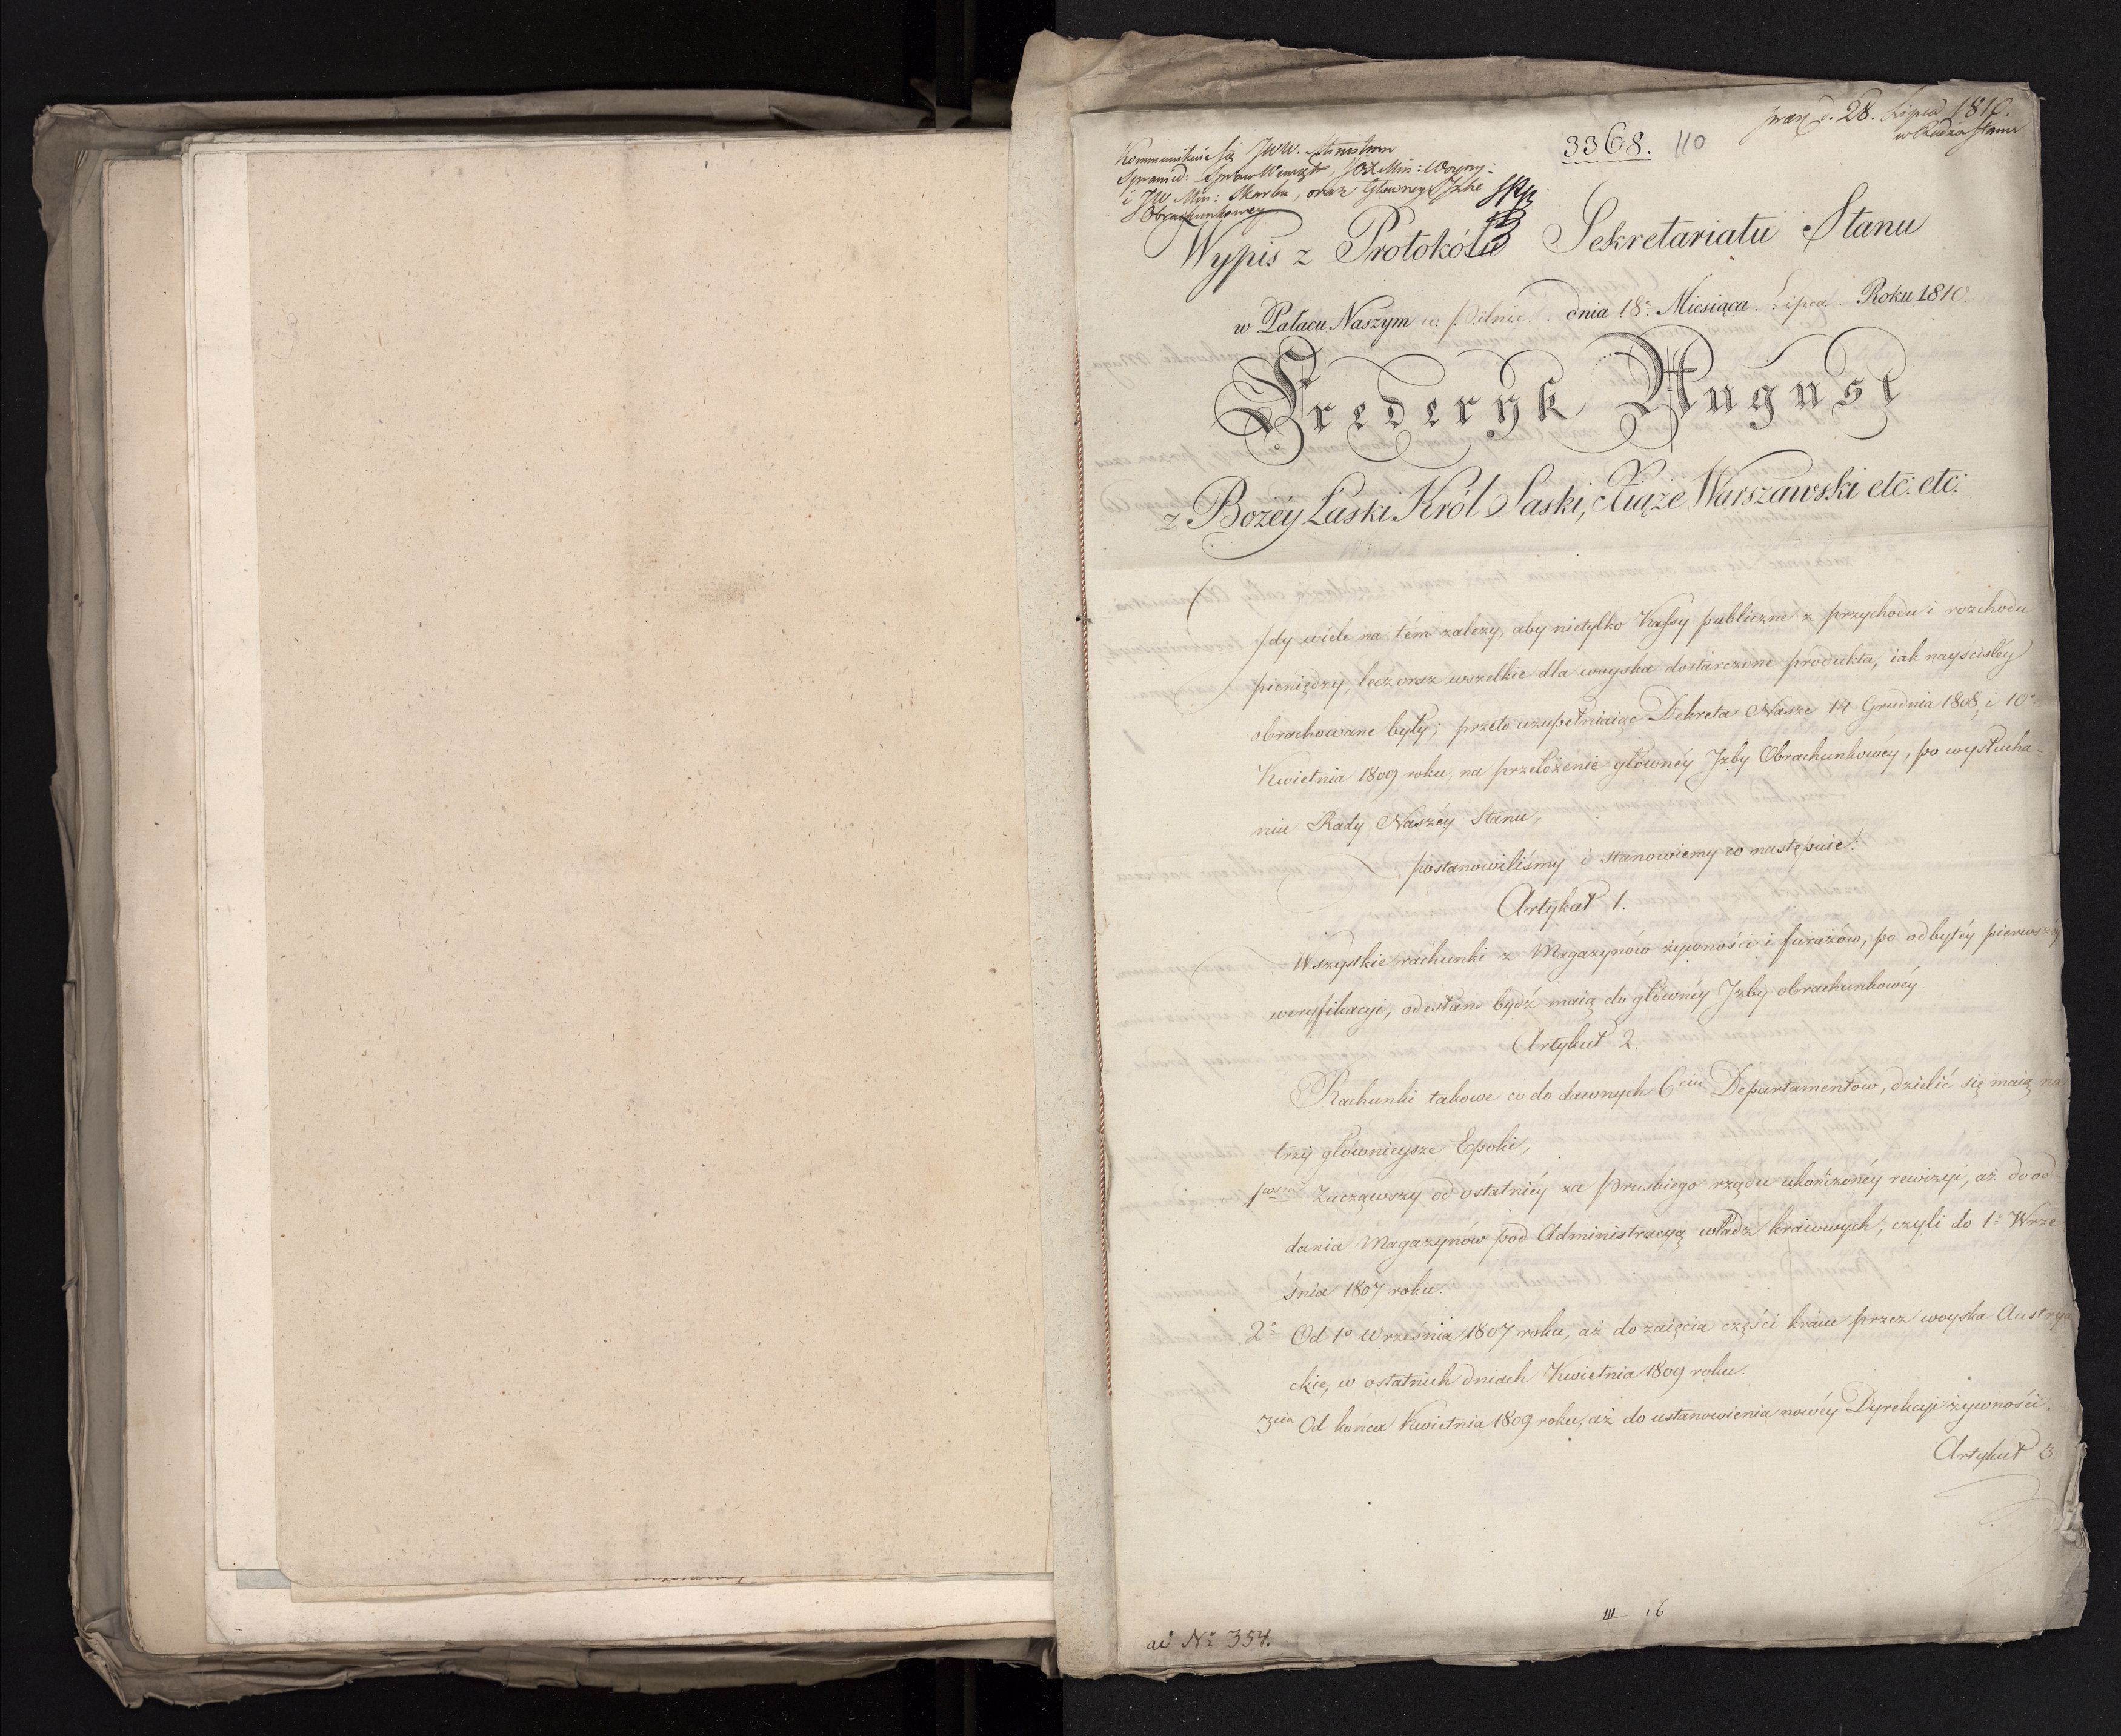 praes d. 28. Lipca 1810.
w Radzie Stanu
3368. 110
Kommunikuie się JWW. Ministrom
Sprawied: Spraw Wewnętr, JOX Min: Woyny:
i JW Min: Skarbu, oraz Główney Izbie
Obrachunkowey
Wypis z Protokółu Sekretariatu Stanu
w Pałacu Naszym w Pilnic dnia 18° Miesiąca Lipca Roku 1810.
Frederyk August
z Bożéy Łaski Król Saski, Xiąże Warszawski etc. etc:
Gdy wiele na tém zależy, aby nietylko Kassy publiczne z przychodu i rozchodu
pieniędzy, lecz oraz wszelkie dla woyska dostarczone produkta, iak nayściśléy
obrachowane były; przeto uzupełniaiąc Dekreta Nasze 14 Grudnia 1808, i 10°
Kwietnia 1809 roku, na przełożenie głównéy Izby Obrachunkowéy, po wysłucha-
niu Rady Naszéy Stanu,
postanowiliśmy i stanowiemy co następuie:
Artykuł 1.
Wszystkie rachunki z Magazynów żywności i furażów, po odbytéy pierwszéy
weryfikacyi, odesłane bydź maią do główney Izby obrachunkowéy.
Artykuł 2.
Rachunki takowe co do dawnych 6ciu Departamentów, dzielić się maią na
trzy głównieysze Epoki,
1wsza Zacząwszy od ostatniéy za Pruskiego rządu ukończonéy rewizyi, aż do od
dania Magazynów pod Administracyą władz kraiowych, czyli do 1° Wrze
śnia 1807 roku.
2a Od 1° Września 1807 roku, aż do zaięcia części kraiu przez woyska Austrya
ckie, w ostatnich dniach Kwietnia 1809 roku.
3cia Od końca Kwietnia 1809 roku, aż do ustanowienia nowéy Dyrekcyi żywności.
Artykuł 3
III 16
ad No 354.